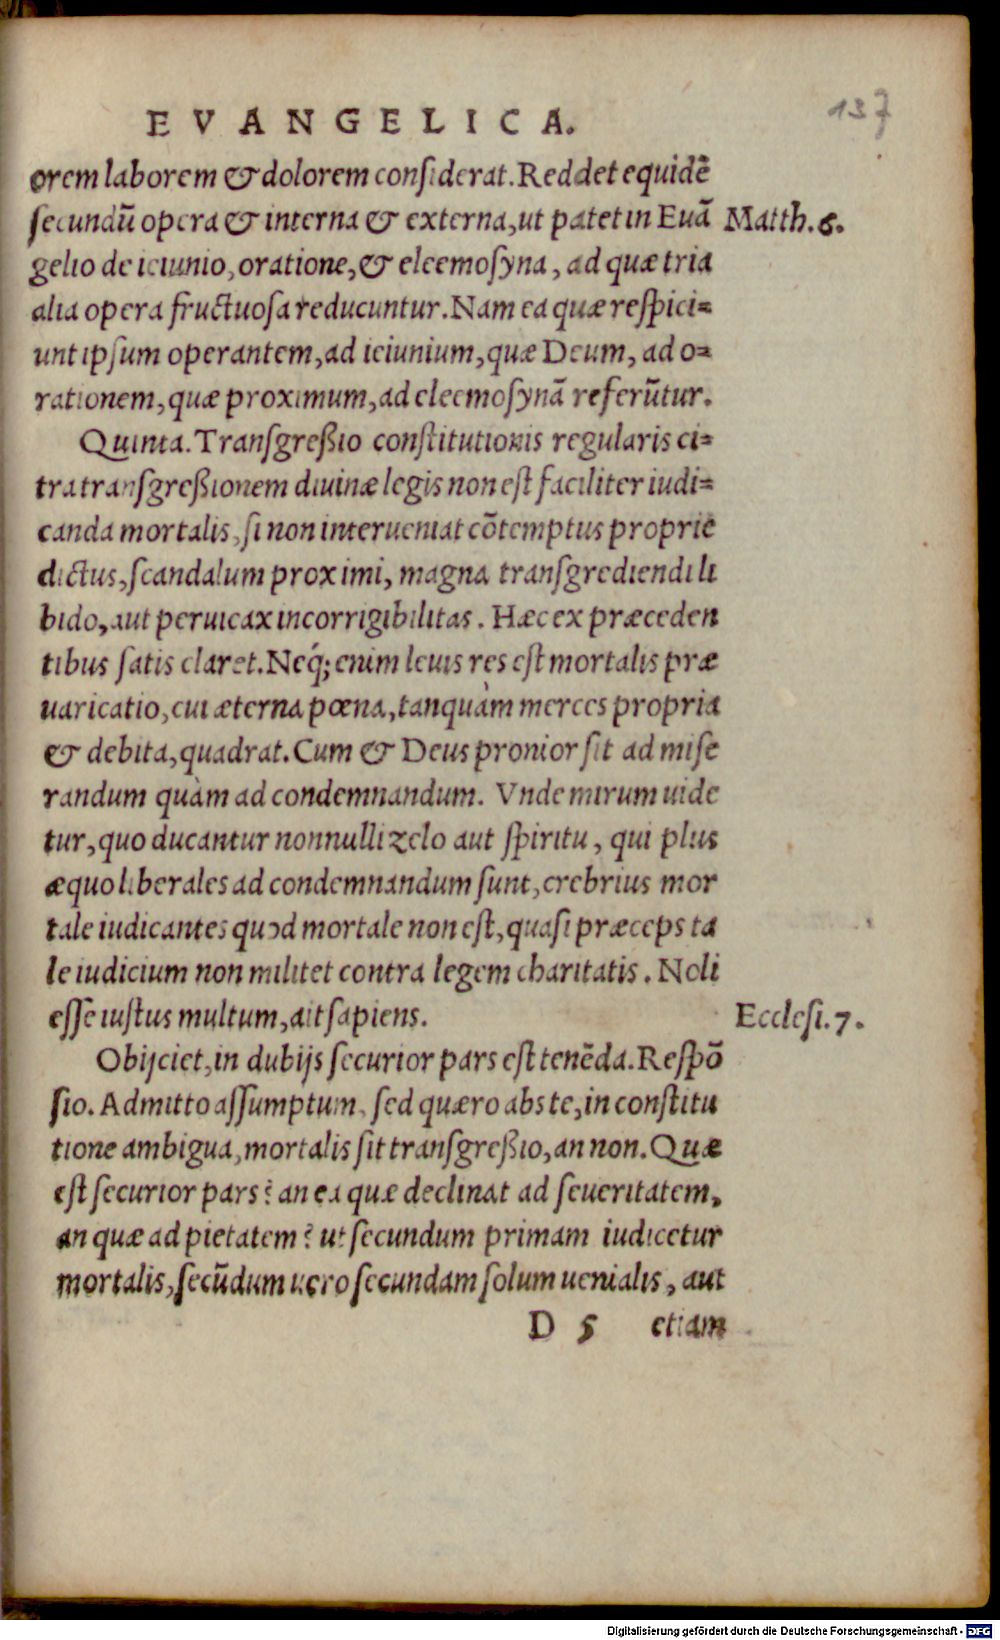 EVANGELICA.
137
orem laborem & dolorem considerat. Reddet equidē
secundū opera & interna & externa, ut patet in Euā
Matth. 6.
gelio de ieiunio, oratione, & eleemosyna, ad quæ tria
alia opera fructuosa reducuntur. Nam ea quæ respici=
unt ipsum operantem, ad ieiunium, quæ Deum, ad o=
rationem, quæ proximum, ad eleemosynā referūtur.
Quinta. Transgreßio constitutionis regularis ci=
tra transgreßionem diuinæ legis non est faciliter iudi=
canda mortalis, si non interueniat cōtemptus proprie
dictus, scandalum proximi, magna transgrediendi li
bido, aut peruicax incorrigibilitas. Hæc ex præceden
tibus satis claret. Neq́; enim leuis res est mortalis præ
uaricatio, cui æterna pœna, tanquàm merces propria
& debita, quadrat. Cum & Deus pronior sit ad mise
randum quàm ad condemnandum. Vnde mirum uide
tur, quo ducantur nonnulli zelo aut spiritu, qui plus
æquo liberales ad condemnandum sunt, crebrius mor
tale iudicantes quod mortale non est, quasi præceps ta
le iudicium non militet contra legem charitatis. Noli
esse iustus multum, ait sapiens.
Ecclesi. 7.
Obijciet, in dubijs securior pars est tenēda. Respō
sio. Admitto assumptum, sed quæro abs te, in constitu
tione ambigua, mortalis sit transgreßio, an non. Quæ
est securior pars? an ea quæ declinat ad seueritatem,
an quæ ad pietatem? ut secundum primam iudicetur
mortalis, secūdum uero secundam solum uenialis, aut
D 5 etiam
Digitalisierung gefördert durch die Deutsche Forschungsgemeinschaft - DFG